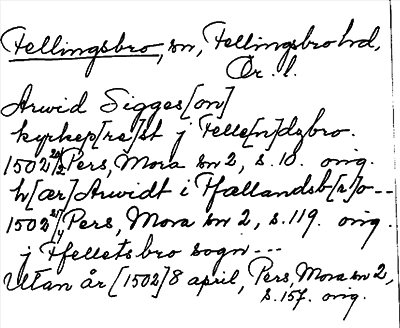 Fellingsbro, sn, Fellingsbro hd,
Ör. l.
Arwid Sigges[on]
kyrkep[re]st j Felle[n]dzbro.
1502 20/2 Pers, Mora sn 2, s. 10. orig.
h[ær] Arwidt i Ffællandsb[r]o --
1502 21/4 Pers, Mora sn 2, s. 119. orig.
j Ffelletsbro sogn ---
Utan år [1502] 8 april, Pers, Mora sn 2,
s. 157. orig.